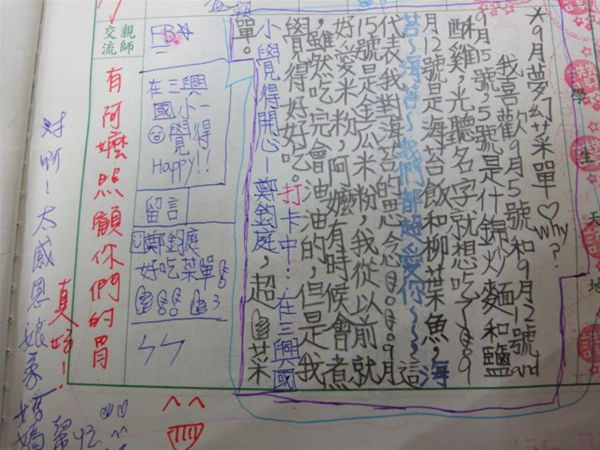 *9月夢幻菜單♡why?
我喜歡9月5號和9月12號and
9月15號,5號是什錦炒麵和鹽
酥雞,光聽名字就想吃了~。9
月12號是海苔飯和柳葉魚,海
苔~海苔~我們都超愛你~~~這
代表我對海苔的思念。9月
15號是金瓜米粉,我從以前就
好愛米粉,阿嬤有時候會煮
,雖然吃完會油油的,但是我
覺得好好吃。打卡中!在三興國
小覺得開心-鄭鈞庭,超菜
單。
學生
天地
親師
交流
FB
在三興
國小一
覺得
Happy!!
留言
鄭鈞庭
好吃菜單
有阿嬤照顧你們的胃
真好!
對啊!太感恩娘家